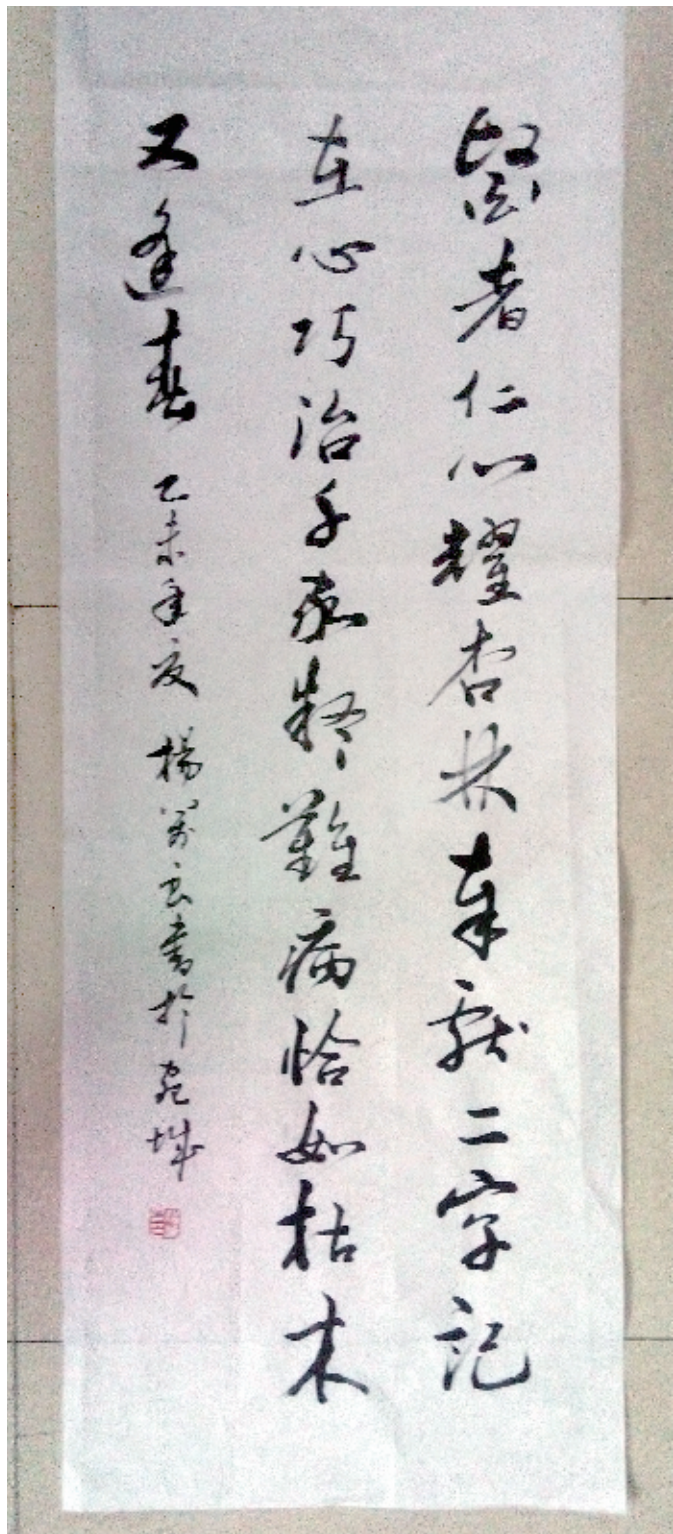 醫者仁心耀杏林奉獻二字記
在心巧治千家疑難病恰如枯木
又逢春 乙未年夏 楊萬玄書於宛城